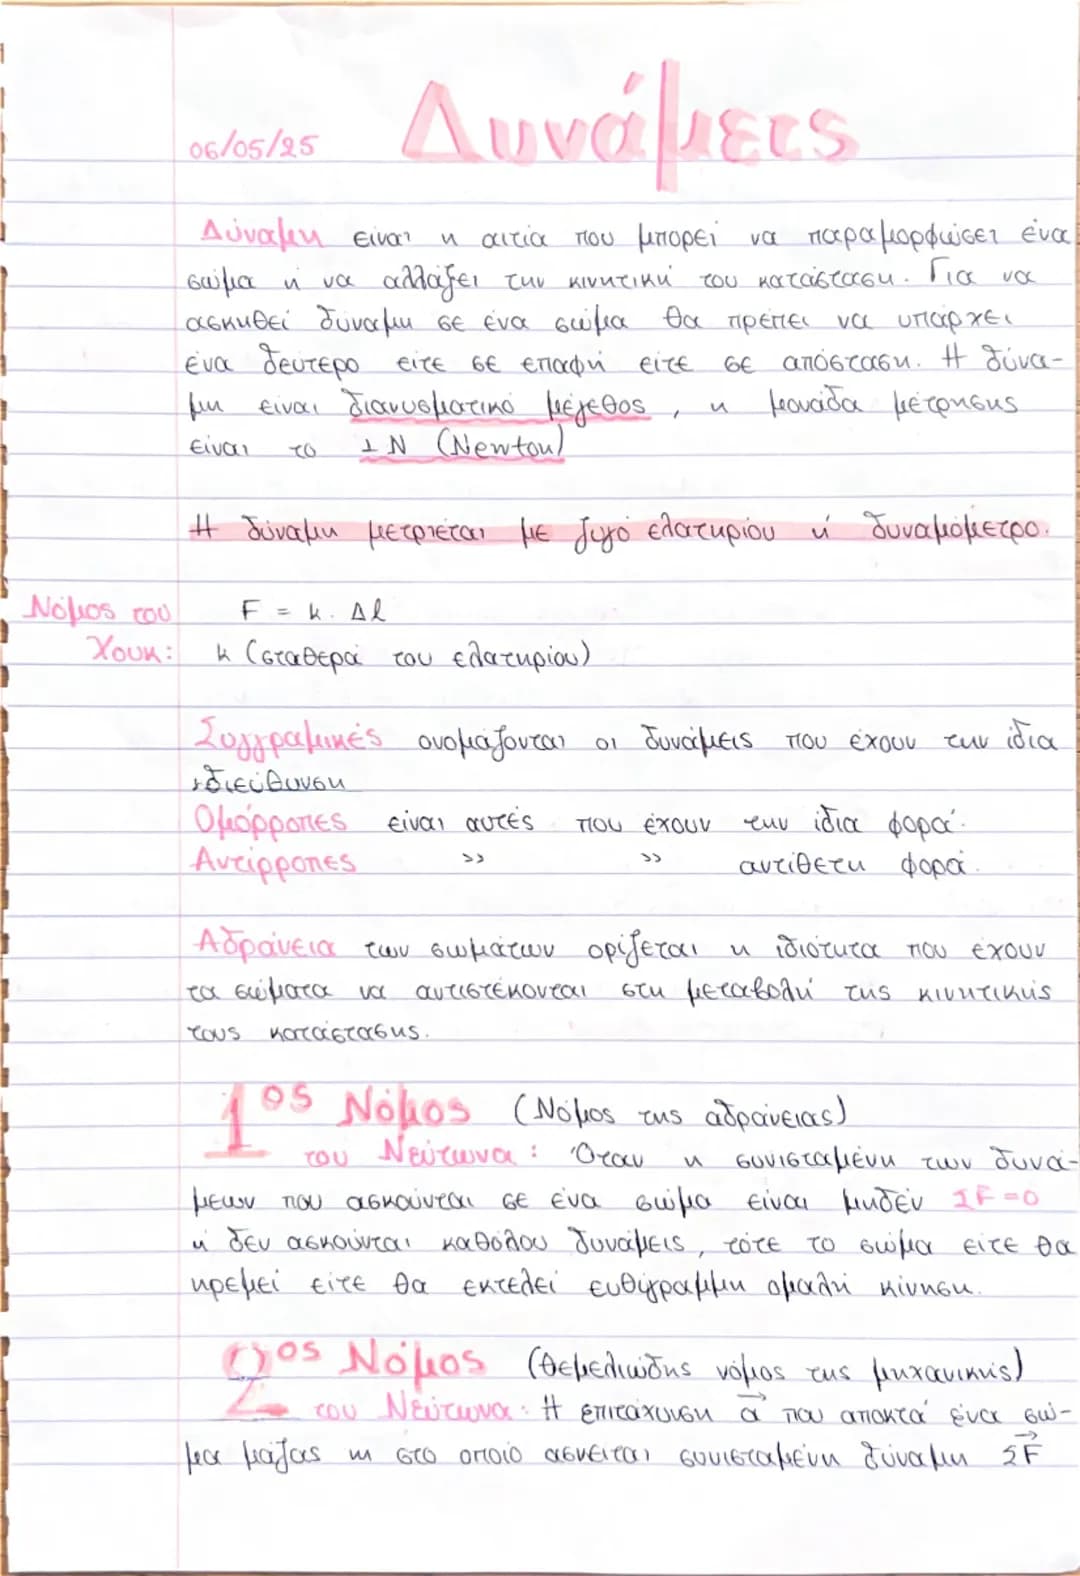 06/05/25 Δυνάμεις
Δύναμη είναι η αιτία που μπορεί να παραμορφώσει ένα
σώμα ή να αλλάξει την κινητική του κατάσταση. Για να
ασκηθεί δύναμη σε ένα σώμα θα πρέπει να υπάρχει
ένα δεύτερο είτε σε επαφή είτε σε απόσταση. Η δύνα-
μη είναι διανυσματικό μέγεθος, η μονάδα μέτρησης
είναι το 1 N (Newton)
Η δύναμη μετριέται με ζυγό ελατηρίου ή δυναμόμετρο.
Νόμος του F = k . Δl
Χουκ: k (σταθερά του ελατηρίου)
Συγγραμικές ονομάζονται οι δυνάμεις που έχουν την ίδια
διεύθυνση
Ομόρροπες είναι αυτές που έχουν την ίδια φορά.
Αντίρροπες >> >> αντίθετη φορά.
Αδράνεια των σωμάτων ορίζεται η ιδιότητα που έχουν
τα σώματα να αντιστέκονται στη μεταβολή της κινητικής
τους κατάστασης.
1ος Νόμος (Νόμος της αδράνειας)
του Νεύτωνα: Όταν η συνισταμένη των δυνά-
μεων που ασκούνται σε ένα σώμα είναι μηδέν ΣF=0
ή δεν ασκούνται καθόλου δυνάμεις, τότε το σώμα είτε θα
ηρεμεί είτε θα εκτελεί ευθύγραμμη ομαλή κίνηση.
2ος Νόμος (θεμελιώδης νόμος της μηχανικής)
του Νεύτωνα: Η επιτάχυνση a⃗ που αποκτά ένα σώ-
μα μάζας m στο οποίο ασκείται συνισταμένη δύναμη ΣF⃗